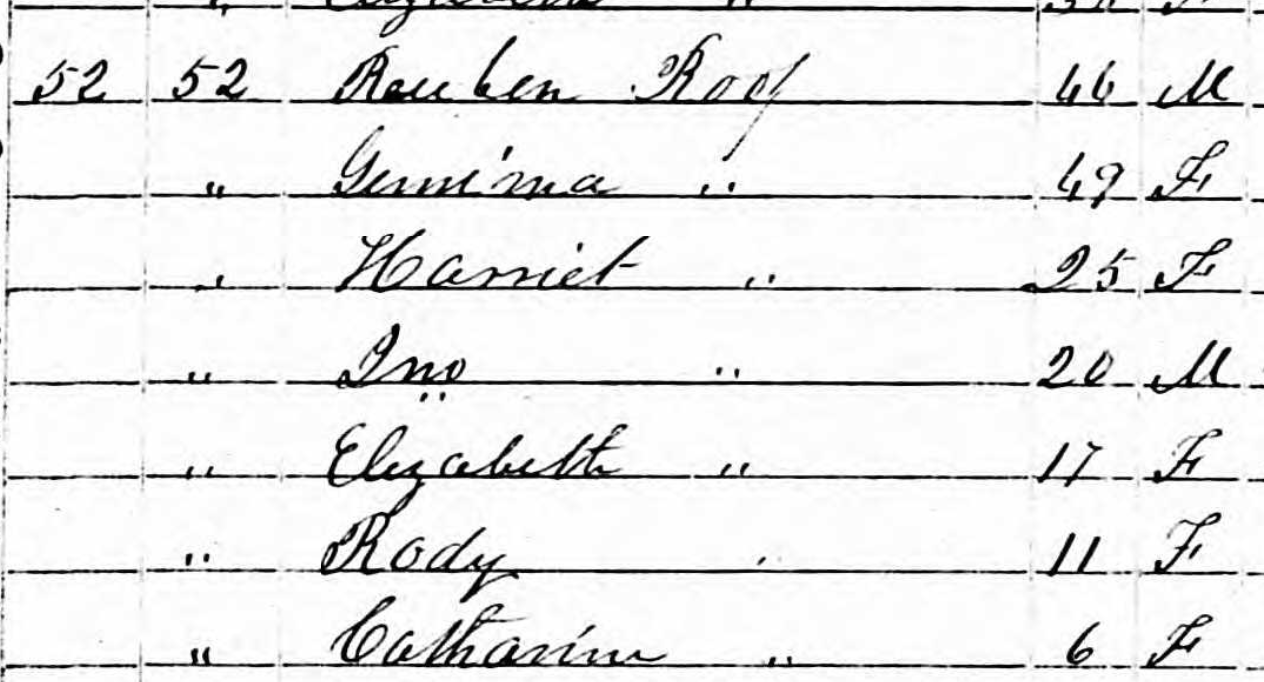 52 52 Reuben Roof 46 M
" Gemima " 49 F
" Harriet " 25 F
" Jno " 20 M
" Elizabeth " 17 F
" Rody " 11 F
" Catharine " 6 F